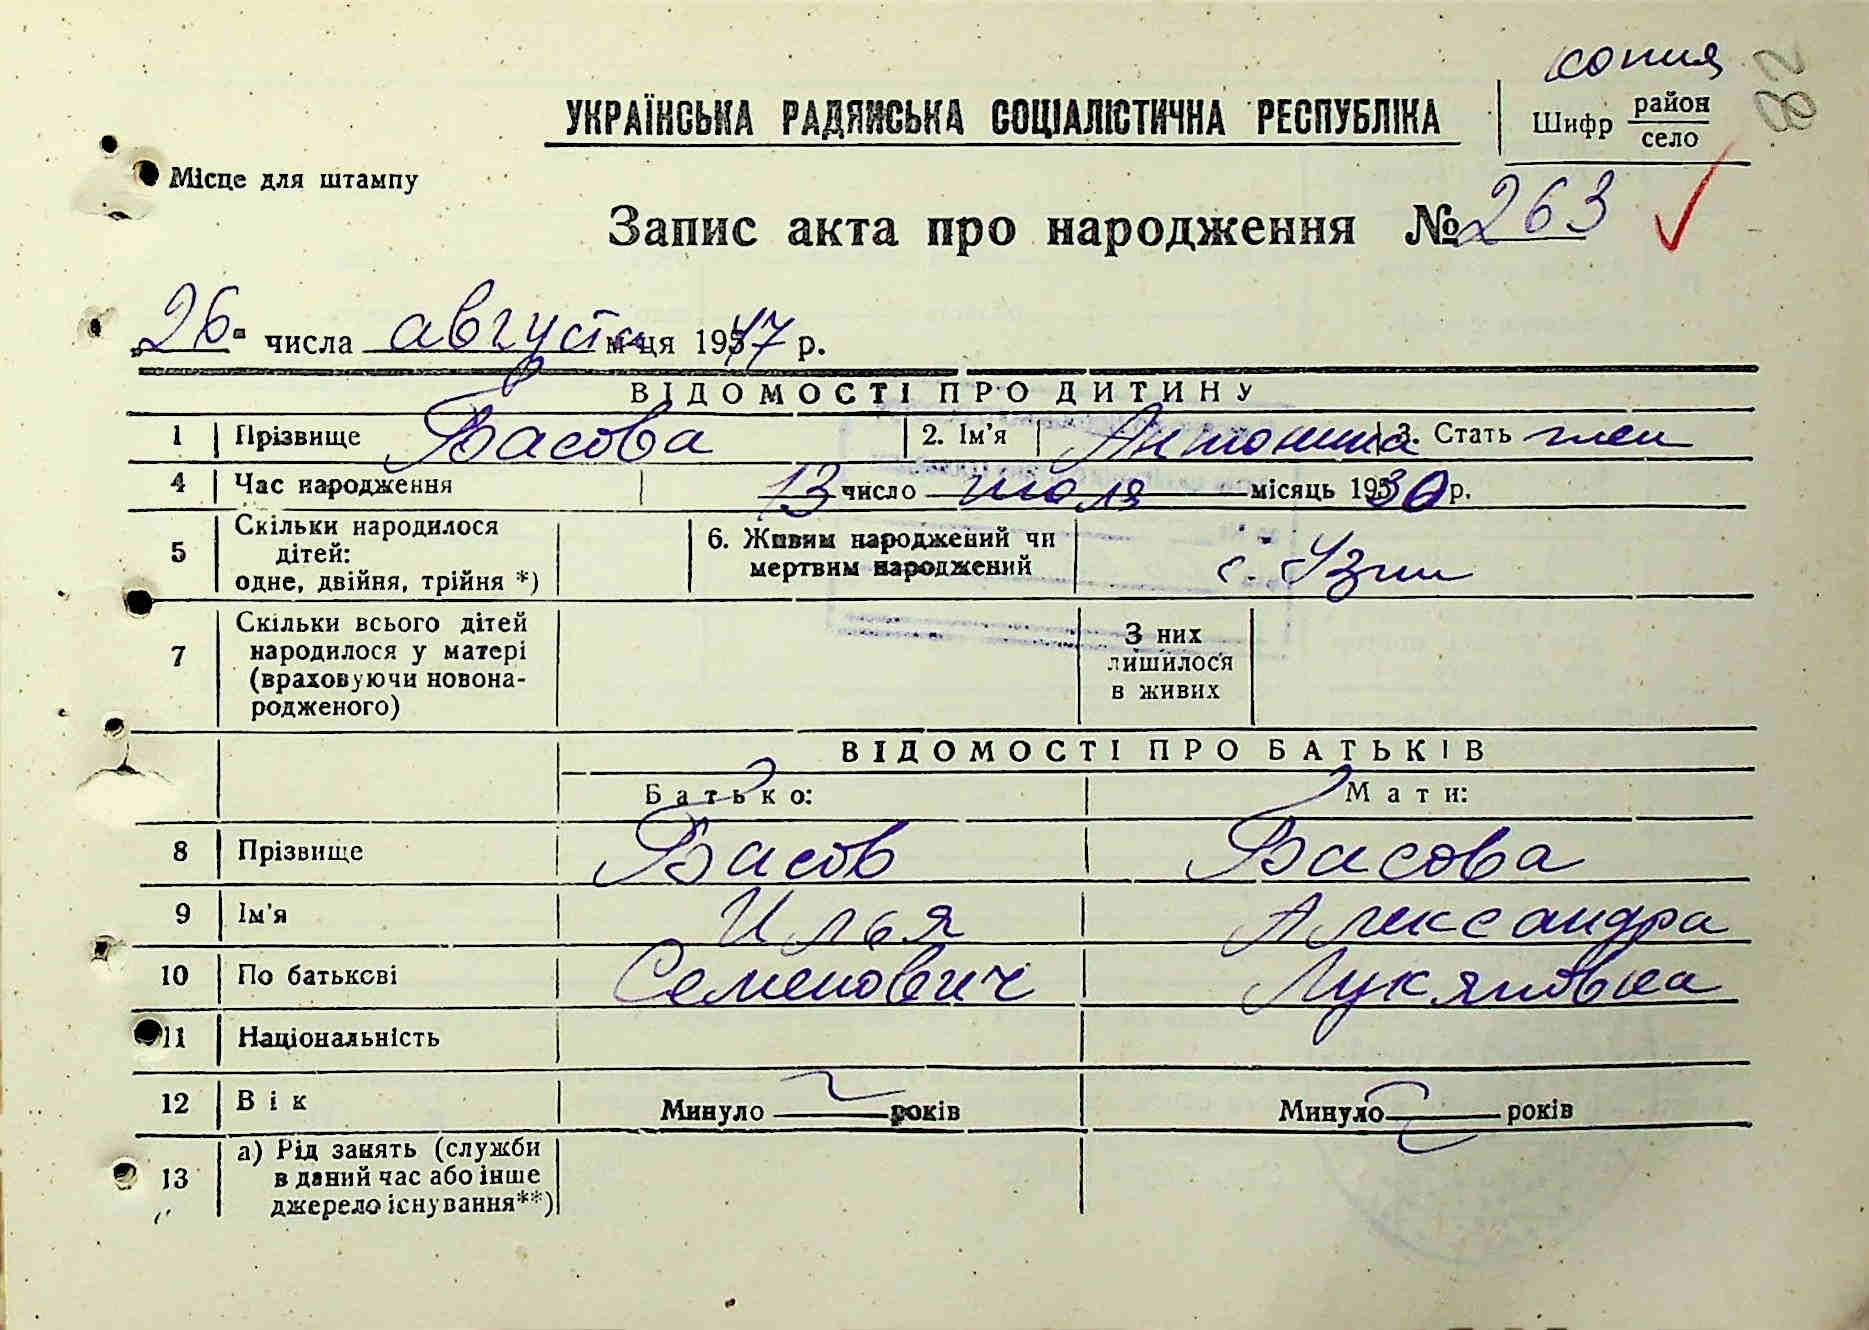 копия
82
УКРАЇНСЬКА РАДЯНСЬКА СОЦІАЛІСТИЧНА РЕСПУБЛІКА
Шифр район
село
Місце для штампу
Запис акта про народження № 263
„26" числа августа м-ця 1947 р.
ВІДОМОСТІ ПРО ДИТИНУ
1 Прізвище Басова 2. Ім'я Антонина 3. Стать жен
4 Час народження 13 число июля місяць 1930 р.
5 Скільки народилося дітей: одне, двійня, трійня *) 6. Живим народжений чи мертвим народжений с. Узин
7 Скільки всього дітей народилося у матері (враховуючи новонародженого) З них лишилося в живих
ВІДОМОСТІ ПРО БАТЬКІВ
Батько: Мати:
8 Прізвище Басов Басова
9 Ім'я Илья Александра
10 По батькові Семенович Лукяновна
11 Національність
12 Вік Минуло років Минуло років
13 а) Рід занять (служби в даний час або інше джерело існування**)